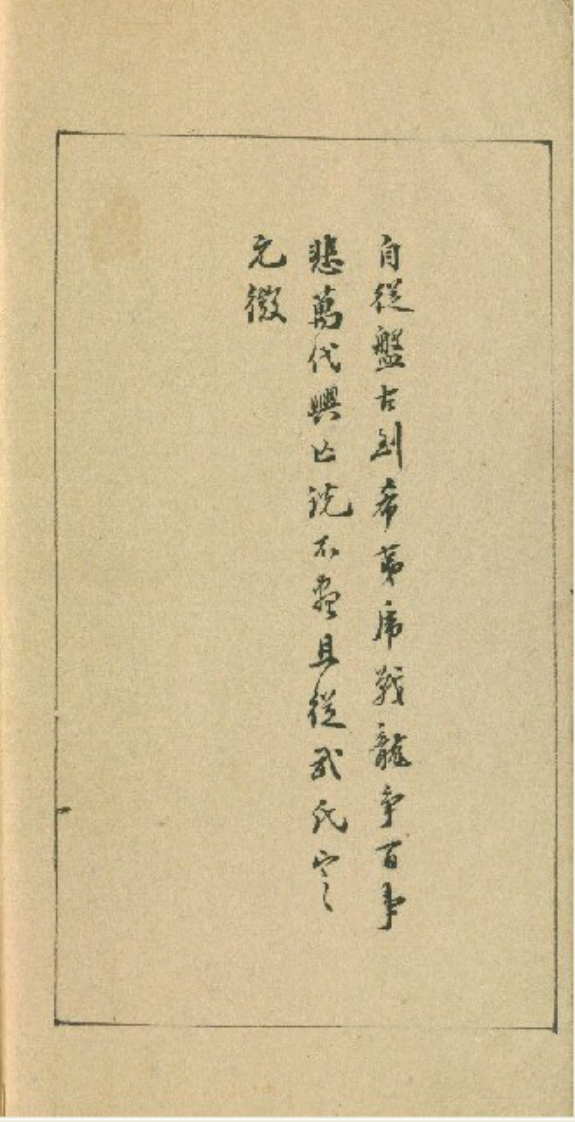 自從盤古到希夷虎戰龍爭百事
悲萬代興亡説不盡且從武氏定
元微